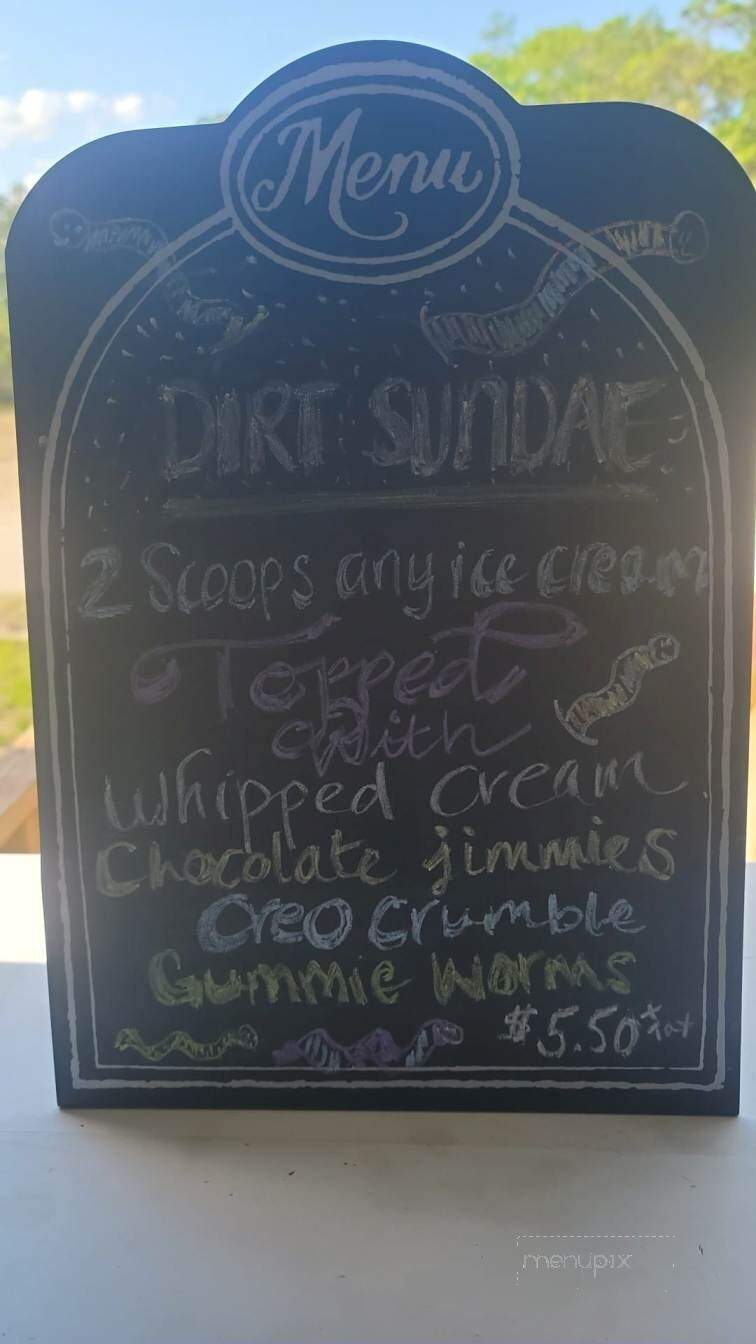 Menu
DIRT SUNDAE
2 Scoops any ice cream
Topped
With
Whipped Cream
Chocolate jimmies
Oreo Crumble
Gummie Worms
$5.50 + tax
menupix